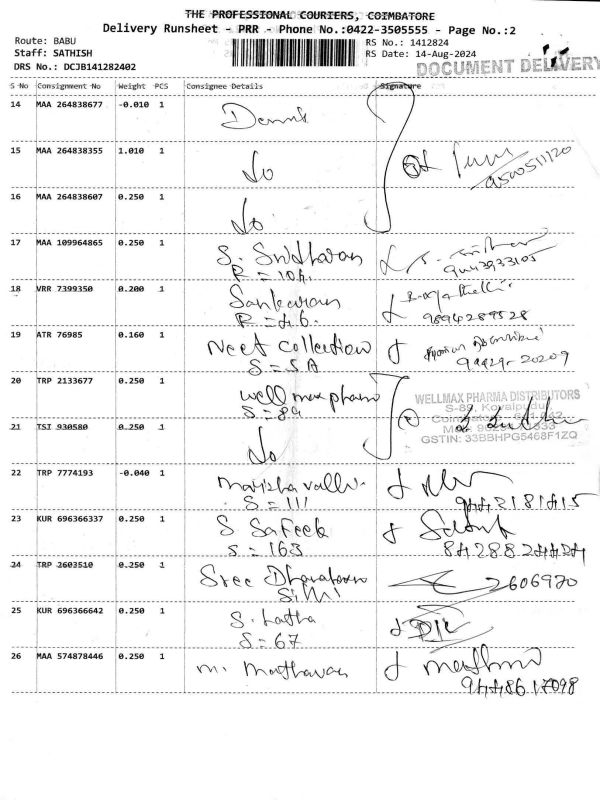 THE PROFESSIONAL COURIERS, COIMBATORE
Delivery Runsheet - PRR - Phone No.:0422-3505555 - Page No.:2
Route: BABU
Staff: SATHISH
DRS No.: DCJB141282402
RS No.: 1412824
RS Date: 14-Aug-2024
DOCUMENT DELIVERY
S No Consignment No Weight PCS Consignee Details Signature
14 MAA 264838677 -0.010 1 Dennis
15 MAA 264838355 1.010 1 Do
9500511120
16 MAA 264838607 0.250 1 Do
17 MAA 109964865 0.250 1 S. Sridharan
R = 104.
9443933105
18 VRR 7399350 0.200 1 Sankaran
R = 46.
9894289528
19 ATR 76985 0.160 1 Neet collection
S = 5A
99429-20209
20 TRP 2133677 0.250 1 well max pharma
S = 89
WELLMAX PHARMA DISTRIBUTORS
S-89, Kovaipudur
GSTIN: 33BBHPG5468F1ZQ
21 TSI 930580 0.250 1 Do
22 TRP 7774193 -0.040 1 S = 111
9442181415
23 KUR 696366337 0.250 1 S Safeek
S = 163
8428824424
24 TRP 2603510 0.250 1 Sree
2606920
25 KUR 696366642 0.250 1 S. Latha
S = 67
26 MAA 574878446 0.250 1 M. Mathavan
9448617098